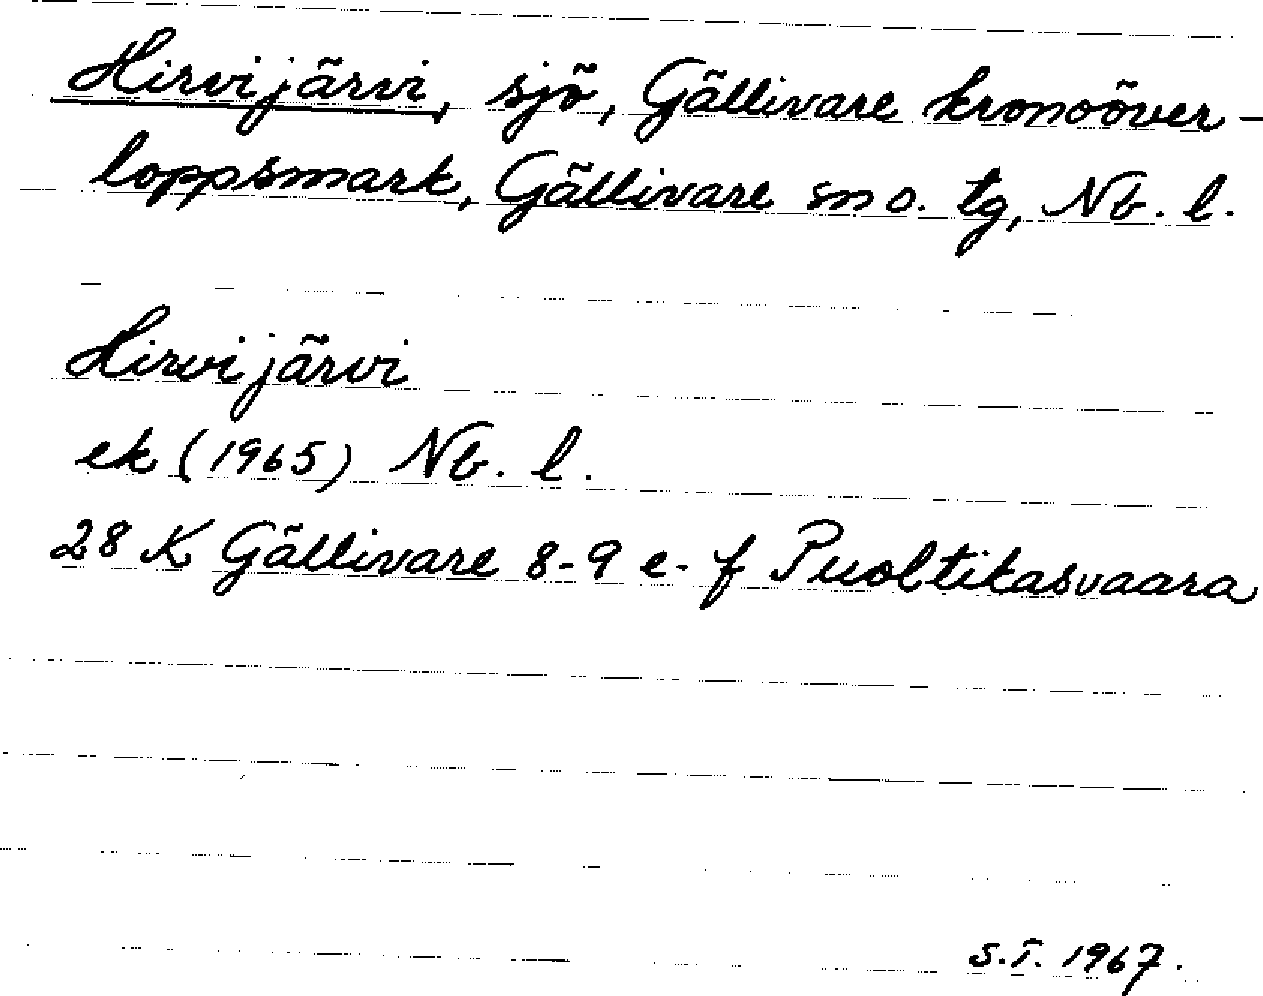 Hirvijärvi, sjö, Gällivare kronoöver-
loppsmark, Gällivare sn o. tg, Nb. l.
Hirvijärvi
ek (1965) Nb. l.
28 K Gällivare 8-9 e-f Puoltikasvaara
S.T. 1967.